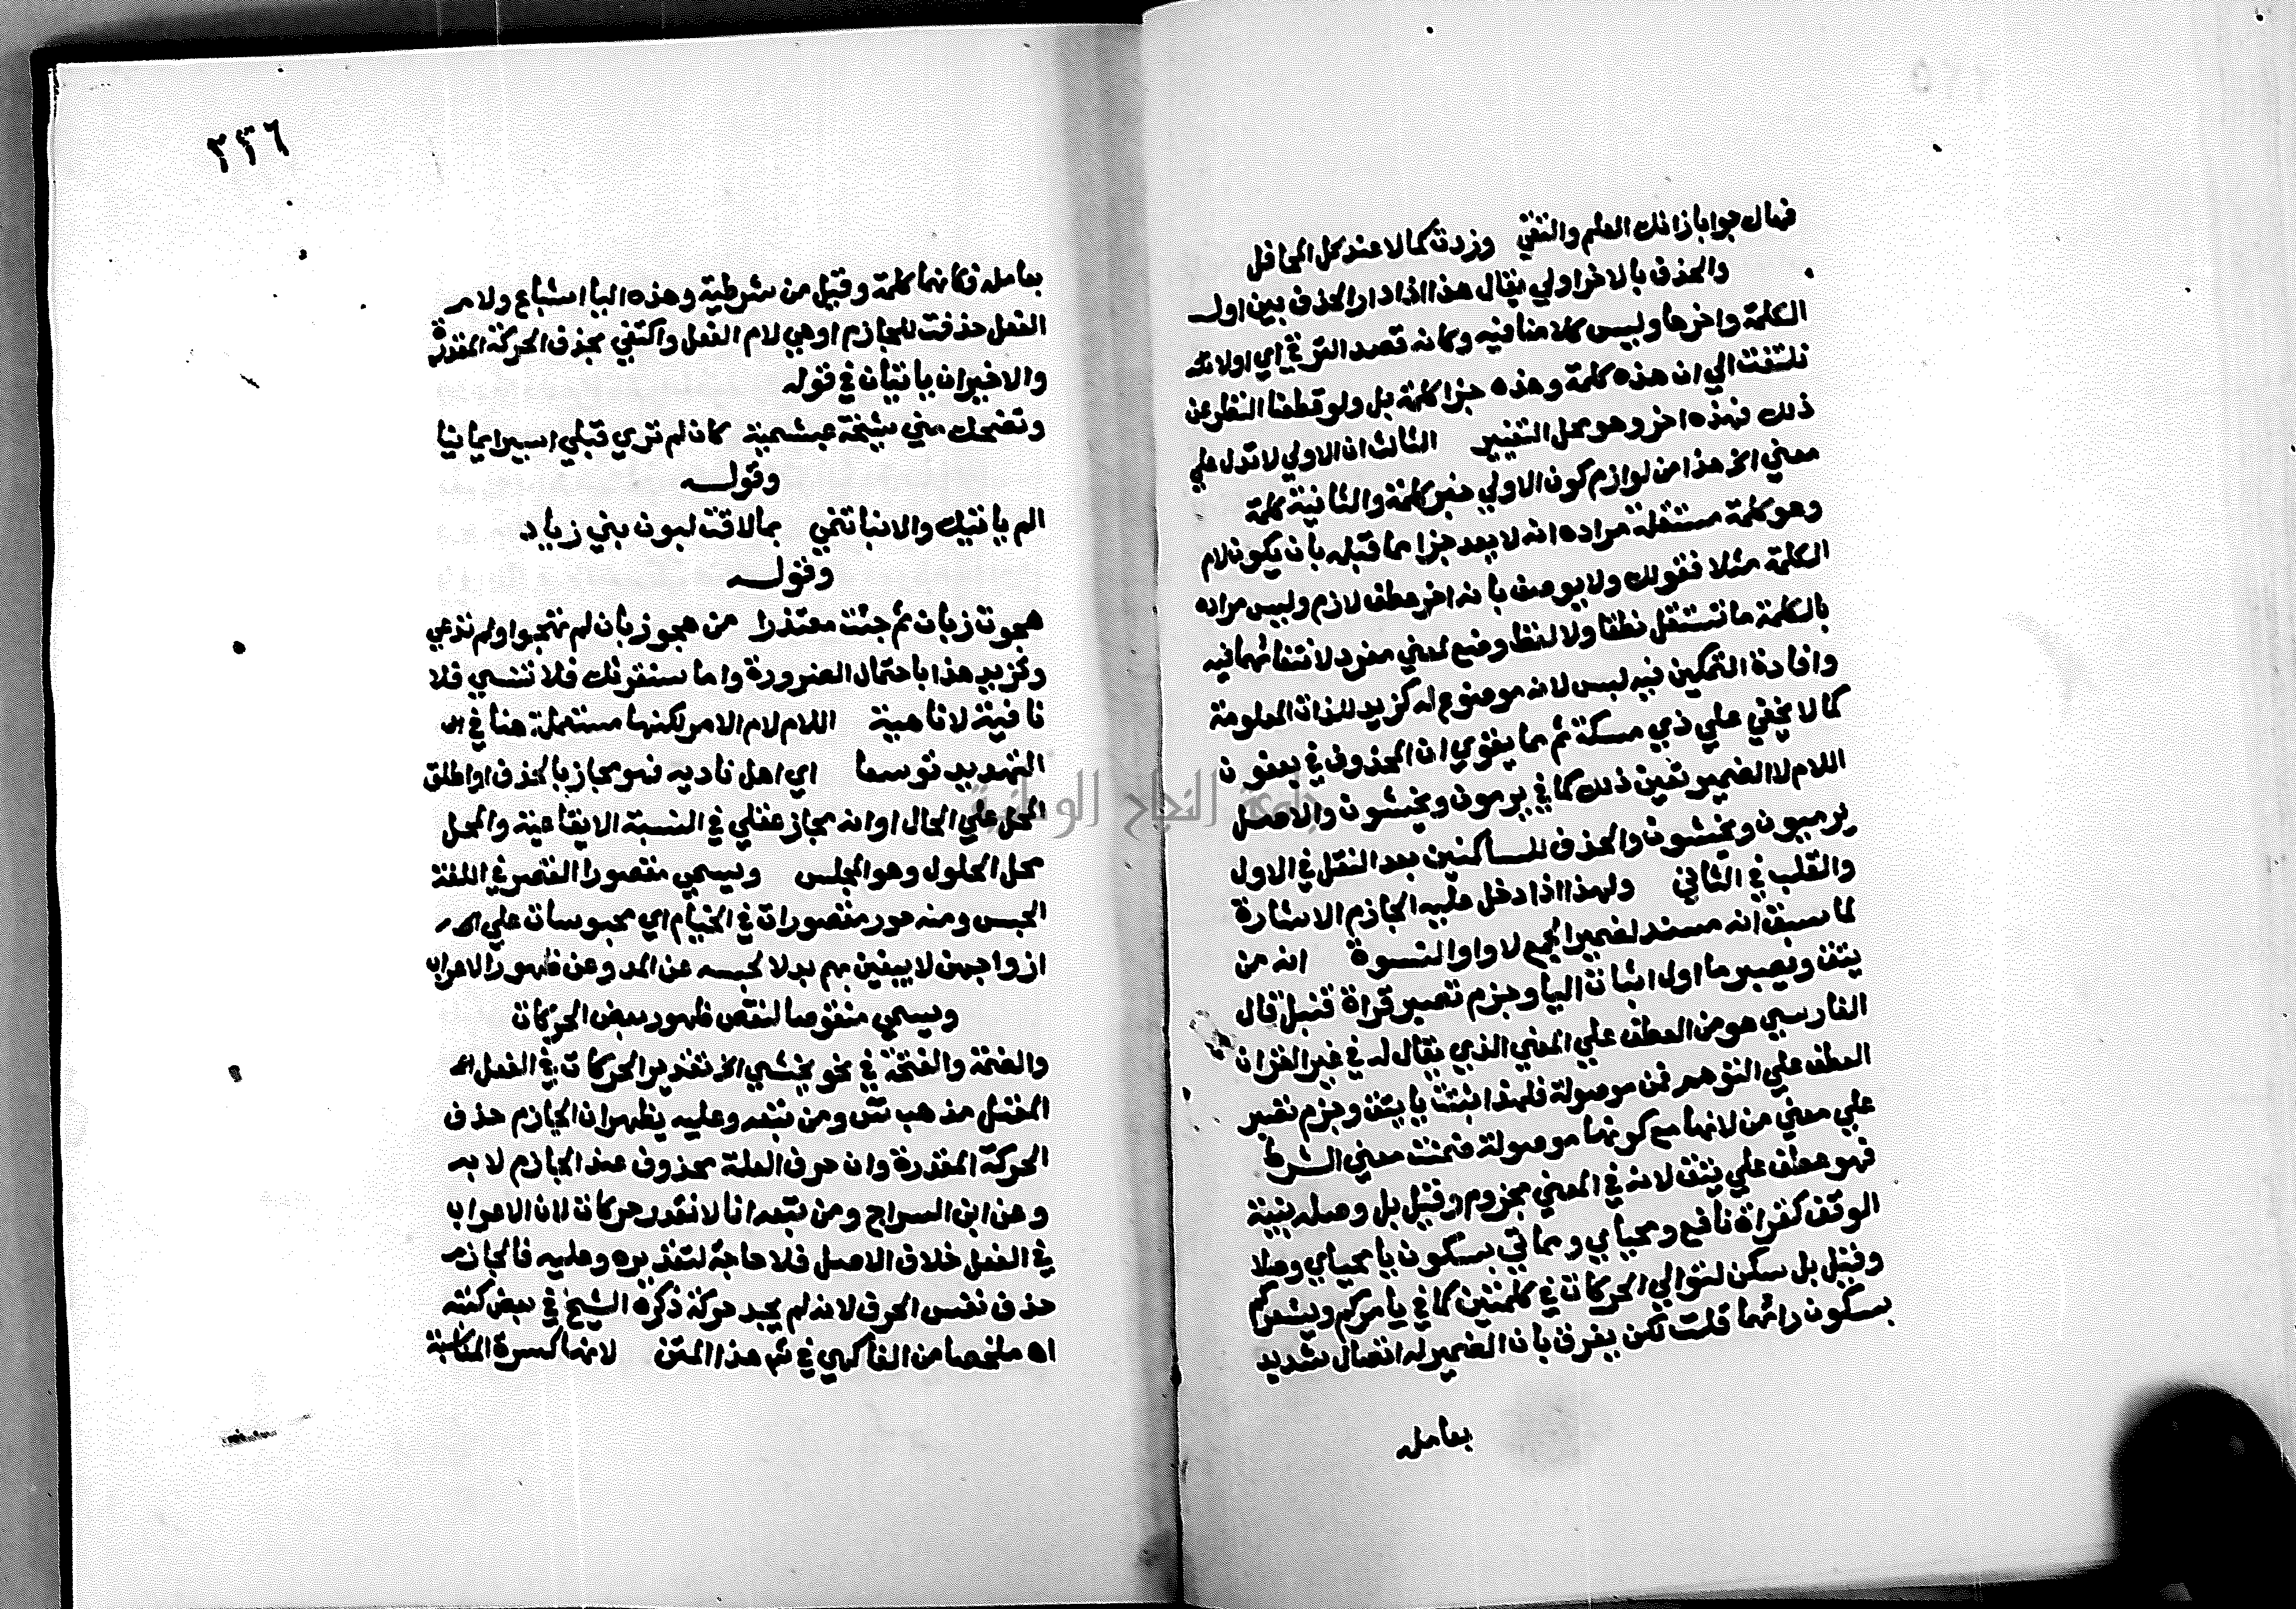 فهاك جوابا زانك العلم والتقي وزدت كمالا عند كل المحافل
والحذف بالاخر اولي يقال هذا اذا دار الحذف بين اول
الكلمة واخرها وليس كلامنا فيه وكانه قصد الترقي اي اولا نك
نلتفت الي ان هذه كلمة وهذه جزا كلمة بل ولو قطعنا النظر عن
ذلك فهذه اخر وهو محل التغيير الثالث ان الاولي لا تدل علي
معني الخ هذا من لوازم كون الاولي جزء كلمة والثانية كلمة
وهو كلمة مستقلة مراده انه لا يعد جزا مما قبله بان يكون لام
الكلمة مثلا فقولك ولا يوصف بانه اخر عطف لازم وليس مراده
بالكلمة ما تستقل نطقا ولا لفظ وضع لمعني مفرد لانتفائهما فيه
وافادة التمكين فيه ليس لانه موضوع له كزيد للذات المعلومة
كما لا يخفي علي ذي مسكة ثم مما يقوي ان المحذوف في يعفون
اللام لا الضمير تعين ذلك كما في يرمون ويخشون والاصل
يرميون ويخشيون والحذف للساكنين بعد النقل في الاول
والقلب في الثاني ولهذا اذا دخل عليه الجازم الاشارة
لما سبق انه مسند لضمير الجمع لا واو النسوة انه من
يتقي ويصبر ما اول اثبات اليا وجزم تصبر قراة قنبل قال
الفارسي هو من العطف علي المعني الذي يقال له في غير القران
العطف علي التوهم فمن موصولة فلهذا اثبتت يا يتقي وجزم تصبر
علي معني من لانها مع كونها موصولة ضمنت معني الشرط
فهو عطف علي يتقي لانه في المعني مجزوم وقيل بل وصله بنية
الوقف كقراة نافع ومحياي ومماتي بسكون يا محياي وصلا
وقيل بل سكن لتوالي الحركات في كلمتين كما في يامركم ويشعركم
بسكون رائهما قلت لكن يفرق بان الضمير له اتصال شديد
بعامله
٢٣٦
بعامله فكانهما كلمة وقيل من شرطية وهذه اليا اشباع ولام
الفعل حذفت للجازم او هي لام الفعل واكتفي بحذف الحركة المقدرة
والاخيران ياتيان في قوله
وتضحك مني شيخة عبشمية كان لم تري قبلي اسيرا يمانيا
وقوله
الم ياتيك والانبا تنمي بما لاقت لبون بني زياد
وقوله
هجوت زبان ثم جئت معتذرا من هجو زبان لم تهجوا ولم تدعي
وتزيد هذا باحتمال الضرورة واما سنقرئك فلا تنسي فلا
نافية لا ناهية اللام لام الامر لكنها مستعملة هنا في
التهديد توسعا اي اهل ناديه فهو مجاز بالحذف او اطلق
المحل علي الحال او انه مجاز عقلي في النسبة الايقاعية والمحل
محل الحلول وهو المجلس ويسمي مقصورا القصر في اللغة
الحبس ومنه حور مقصورات في الخيام اي محبوسات علي
ازواجهن لا يبغين بهم بدلا لحبسه عن المد وعن ظهور الاعراب
ويسمي منقوصا لنقص ظهور بعض الحركات
والضمة والفتحة في نحو يخشي الخ تقدير الحركات في الفعل
المعتل مذهب س ومن تبعه وعليه يظهر ان الجازم حذف
الحركة المقدرة وان حرف العلة محذوف عند الجازم لا به
وعن ابن السراج ومن تبعه انا لا نقدر حركات لان الاعراب
في الفعل خلاف الاصل فلا حاجة لتقديره وعليه فالجازم
حذف نفس الحرف لانه لم يجد حركة ذكره الشيخ في بعض كتبه
اه ملخصا من الفاكهي في شرح هذا المتن لانها كسرة المناسبة
جامعة النجاح الوطنية